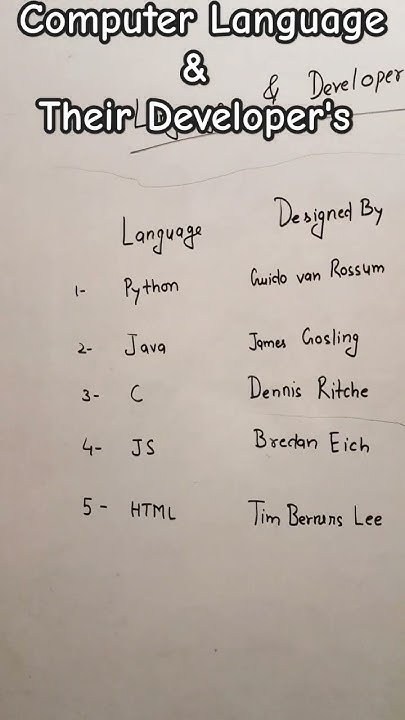 Computer Language
&
Their Developer's
& Developer
Language Designed By
1- Python Guido van Rossum
2- Java James Gosling
3- C Dennis Ritche
4- JS Bredan Eich
5- HTML Tim Berruns Lee